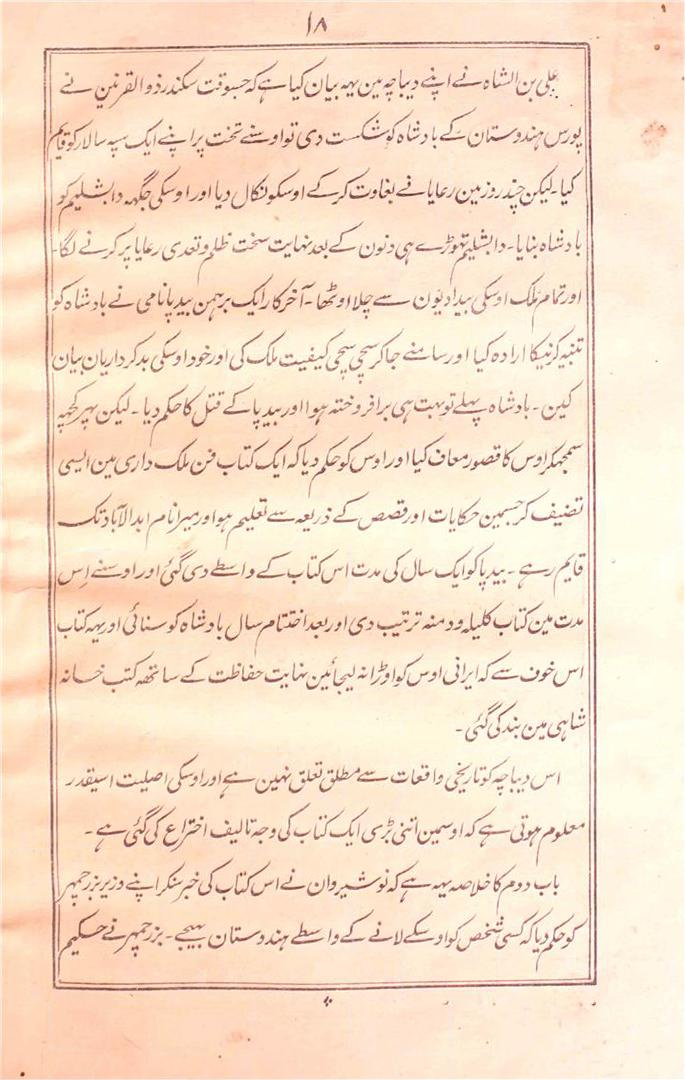 ۱۸
علی بن الشاہ نے اپنے دیباچہ مین یہہ بیان کیا ہے کہ جسوقت سکندر ذوالقرنین نے
پورس ہندوستان کے بادشاہ کو شکست دی تو اوسنے تخت پر اپنے ایک سپہ سالار کو قایم
کیا۔ لیکن چند روز مین رعایا نے بغاوت کر کے اوسکو نکال دیا اور اوسکی جگہہ دابشلیم کو
بادشاہ بنایا۔ دابشلیم تھوڑے ہی دنون کے بعد نہایت سخت ظلم و تعدی رعایا پر کرنے لگا۔
اور تمام ملک اوسکی بیدادیون سے چلا اوٹھا۔ آخر کار ایک برہمن بیدپا نامی نے بادشاہ کو
تنبیہ کرنیکا ارادہ کیا اور سامنے جا کر سچی سچی کیفیت ملک کی اور خود اوسکی بدکرداریان بیان
کین۔ بادشاہ پہلے تو بہت ہی برافروختہ ہوا اور بیدپا کے قتل کا حکم دیا۔ لیکن پہر کچہہ
سمجھکر اوس کا قصور معاف کیا اور اوس کو حکم دیا کہ ایک کتاب فن ملک داری مین ایسی
تصنیف کر جسمین حکایات اور قصص کے ذریعہ سے تعلیم ہو اور میرا نام ابدالآباد تک
قایم رہے۔ بیدپا کو ایک سال کی مدت اس کتاب کے واسطے دی گئی اور اوسنے اس
مدت مین کتاب کلیلہ و دمنہ ترتیب دی اور بعد اختتام سال بادشاہ کو سنائی اور یہہ کتاب
اس خوف سے کہ ایرانی اوس کو اوڑا نہ لیجائین نہایت حفاظت کے ساتھہ کتب خانہ
شاہی مین بند کی گئی۔
اس دیباچہ کو تاریخی واقعات سے مطلق تعلق نہین ہے اور اوسکی اصلیت اسیقدر
معلوم ہوتی ہے کہ اوسمین اتنی بڑی ایک کتاب کی وجہ تالیف اختراع کی گئی ہے۔
باب دوم کا خلاصہ یہہ ہے کہ نوشیروان نے اس کتاب کی خبر سنکر اپنے وزیر بزرجمہر
کو حکم دیا کہ کسی شخص کو اوسکے لانے کے واسطے ہندوستان بہیجے۔ بزرجمہر نے حکیم